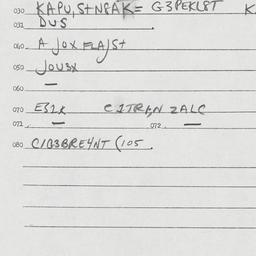 030 KAPU, StNPAK= G3PEKL8T K
031 DUS .
040 A JOX FLAJSt
050 JOU3X
060 —
070 E31K C2TRAN ZALC
071 — 072 —
080 C1B3BREYNT (105 .